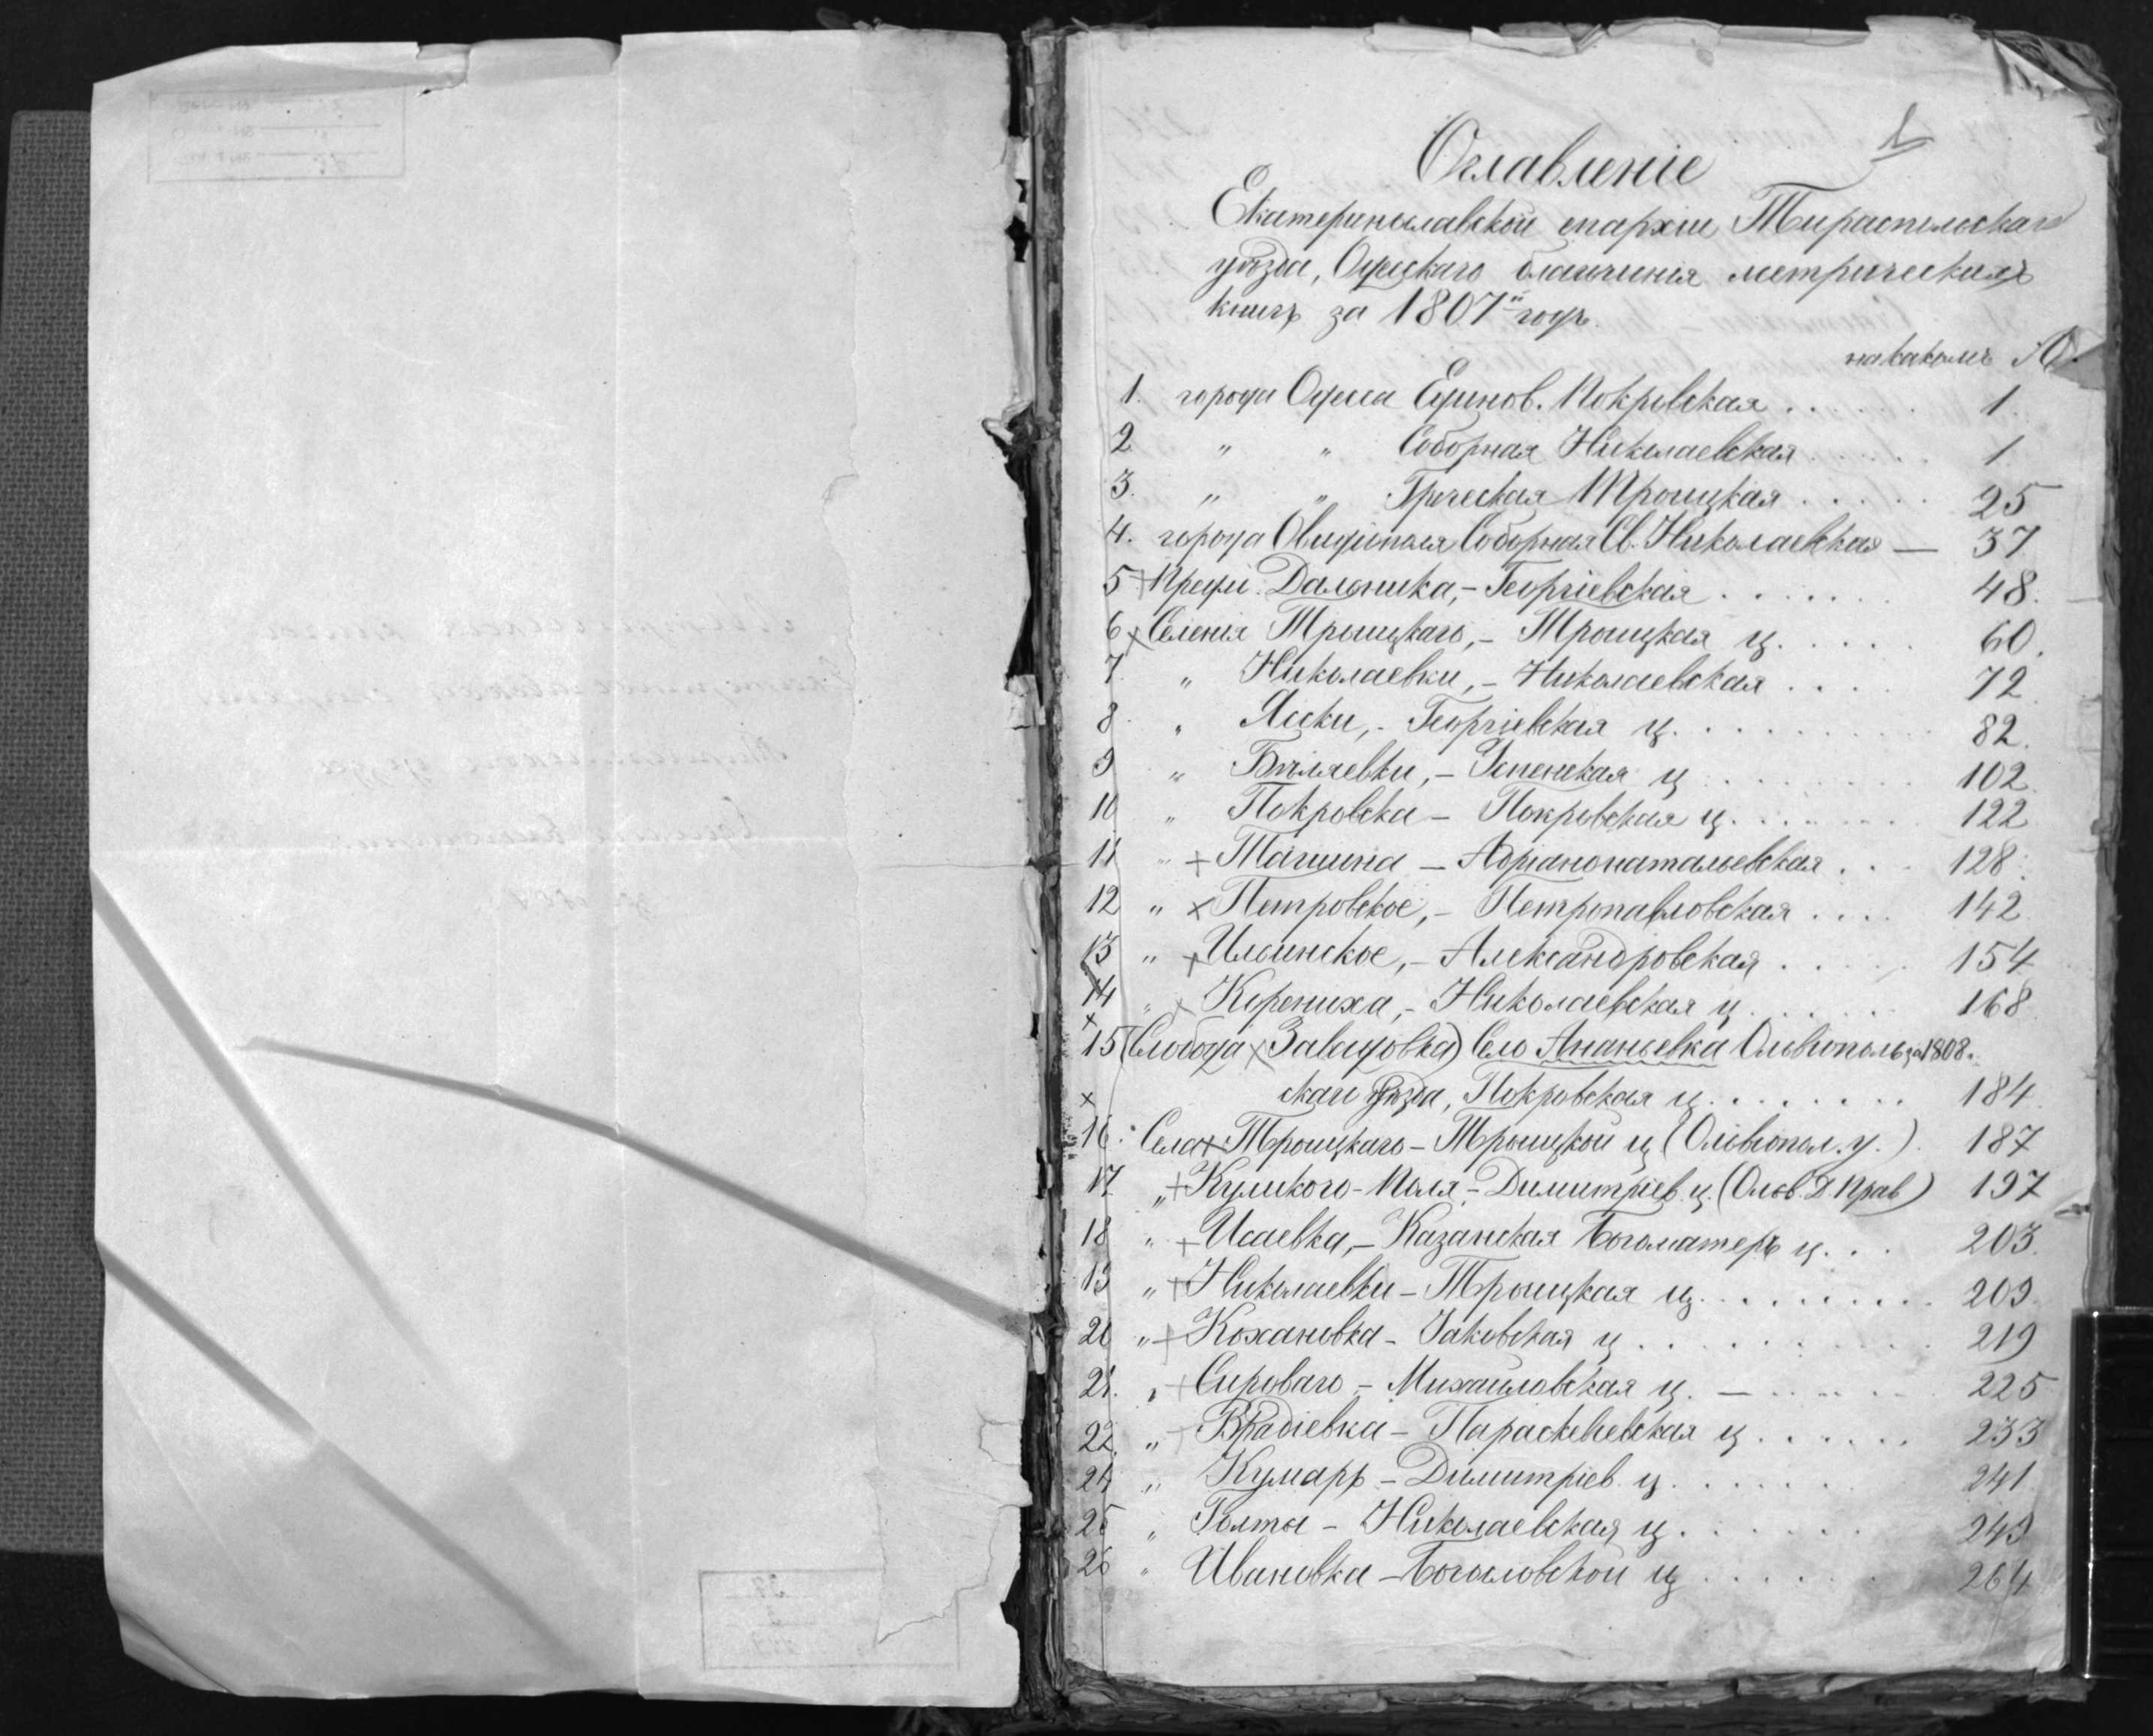 1
Оглавленіе
Екатеринославской епархіи Тираспольскаго
уѣзда, Одесскаго благочинія метрическихъ
книгъ за 1807й годъ.
на какомъ л.
1. города Одесса Единов. Покровская . . . . . 1
2 " " Соборная Николаевская . . . . . 1
3. " " Греческая Троицкая . . . . . 25
4. города Овидіополя Соборная Св. Николаевская — 37
5 + Предм. Дальника, - Георгіевская . . . . . . . 48.
6 x Селенія Троицкаго, - Троицкая ц. . . . . 60.
7. " Николаевки, - Николаевская . . . . 72
8. " Яски, - Георгіевская ц. . . . . . . . . . 82.
9 " Бѣляевки, - Успенская ц . . . . . . . . 102.
10 " Покровска - Покровская ц. . . . . . . 122
11 " + Ташина - Адріанонатальевская . . . 128.
12 " x Петровское, - Петропавловская . . . . 142
13 " + Ильинское, - Александровская . . . . . 154
14 " x Корениха, - Николаевская ц. . . . . . 168
x
15 (Слобода x Заводовка) Село Ананьевка Ольвіополь за 1808.
x скаго уѣзда, Покровская ц. . . . . . . . 184.
16. Села + Троицкаго - Троицкой ц (Ольвіопол. у.). 187
17. " + Куликого-Поля, - Димитріев. ц. (Ольв. Д. Прав) 197
18 " + Исаевка, - Казанская Богоматерь ц. . . 203.
19 " + Николаевки - Троицкая ц. . . . . . . . . 209.
20 " + Кохановка - Іаковская ц . . . . . . . . . 219
21. " + Сироваго - Михаиловская ц. — . . . . . 225
22. " + Врадіевка - Параскевіевская ц . . . . . . 233
24 " Кумаръ - Димитріев. ц. . . . . . . 241
25 " Голты - Николаевская ц. . . . . . . 249
26 " Ивановка - Богословской ц . . . . . . 264